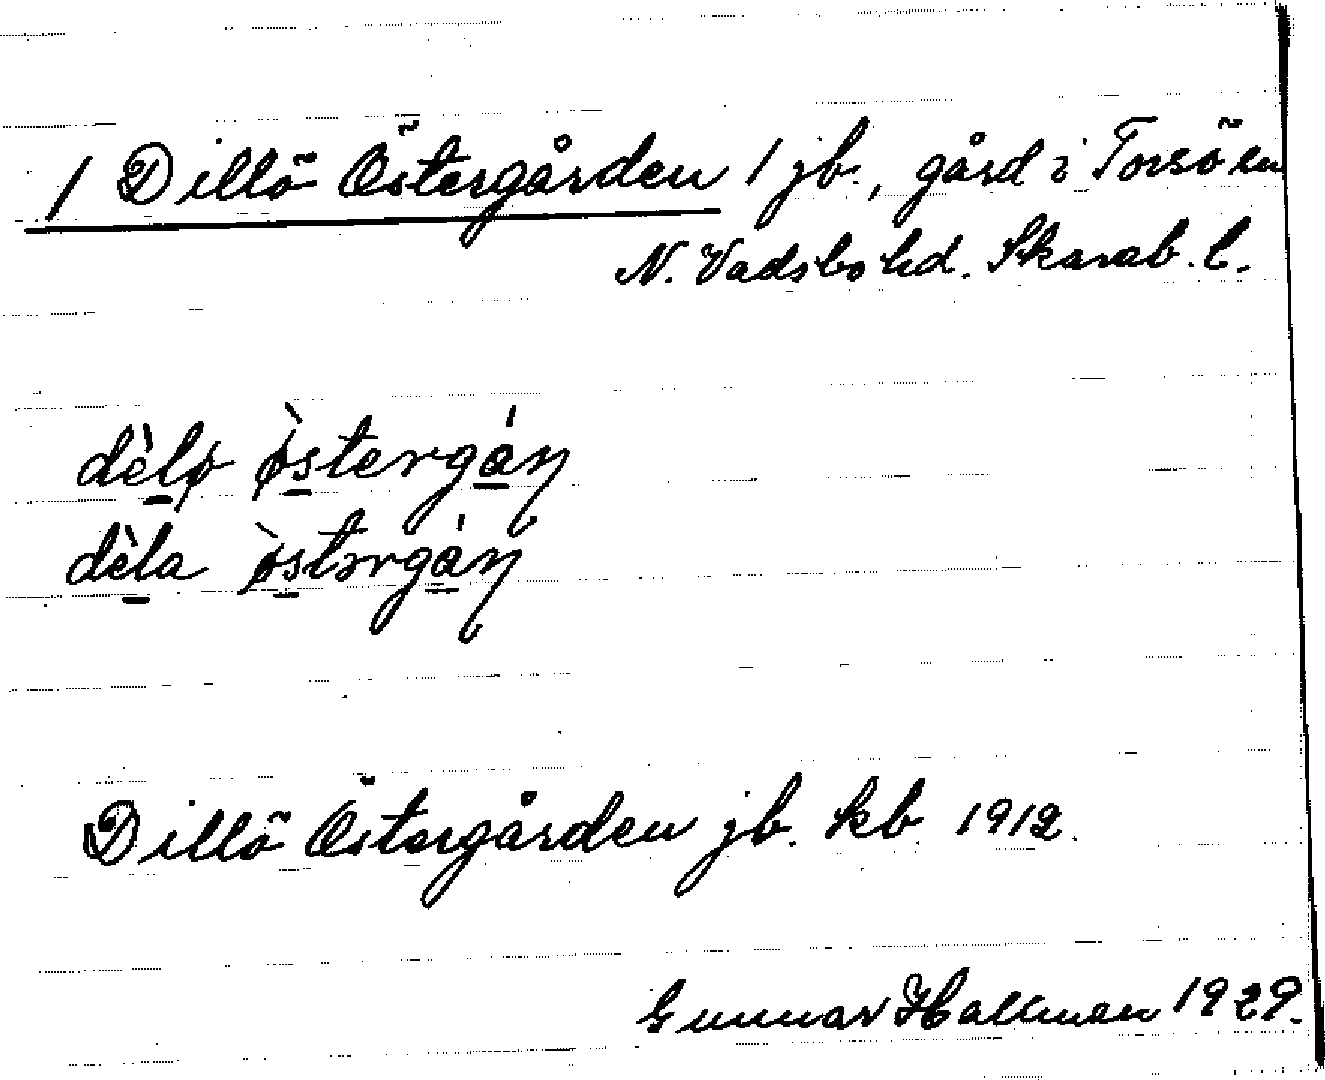 / Dillö Östergården 1 jb., gård i Torsö sn
N. Vadsbo hd. Skarab. l.
dèlø ø̀stergán
dèla ø̀stərgán
Dillö Östergården jb. kb. 1912.
Gunnar Hallman 1929.